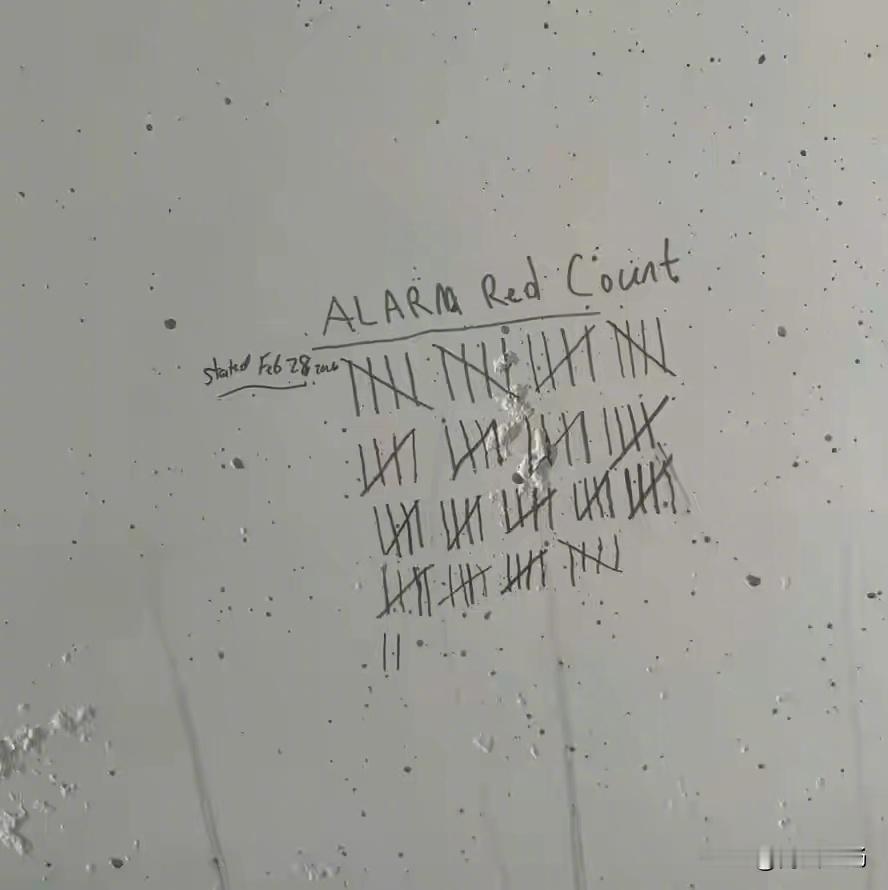 ALARM Red Count
Started Feb 28 2026